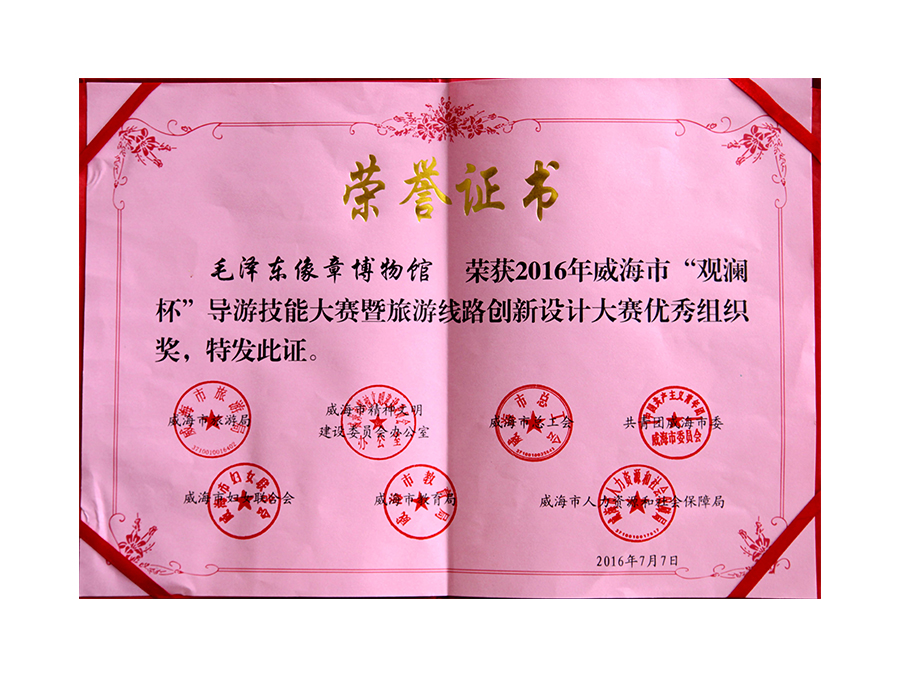 荣誉证书
毛泽东像章博物馆 荣获2016年威海市“观澜
杯”导游技能大赛暨旅游线路创新设计大赛优秀组织
奖，特发此证。
威海市旅游局
威海市精神文明
建设委员会办公室
威海市总工会
共青团威海市委
威海市妇女联合会
威海市教育局
威海市人力资源和社会保障局
2016年7月7日